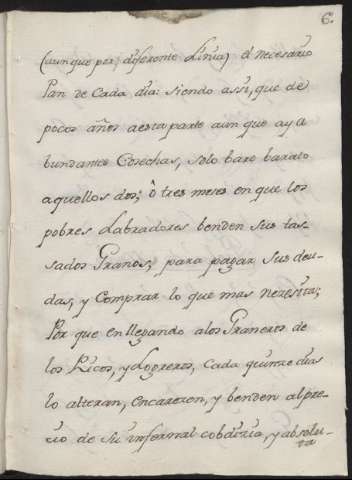 6.
(aunque por diferente Linia) el necesario
Pan de cada dia: siendo assi, que de
pocos años aesta parte aun que ay a
bundantes Cosechas, solo baxo barato
aquellos dos; ò tres meses en que los
pobres Labradores benden sus tas-
sados Granos, para pagar sus deu-
das, y Comprar lo que mas necesita;
Por que en llegando alos Graneros de
los Ricos, y Logreros, cada quince dias
lo alteran, encarezen, y benden alpre-
cio de su infernal cobdicia, y absolu-
ta